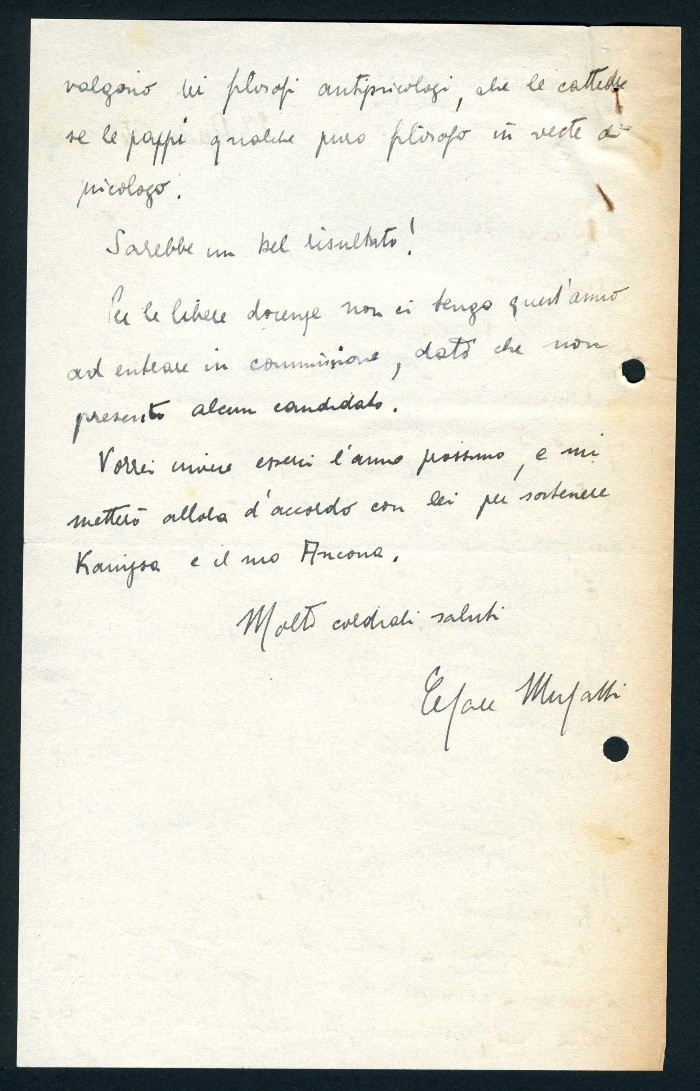 volgono dei filosofi antipsicologi, che le cattedre
se le pappi qualche puro filosofo in veste di
psicologo.
Sarebbe un bel risultato!
Per le libere docenze non ci tengo quest'anno
ad entrare in commissione, dato che non
presento alcun candidato.
Vorrei invece esserci l'anno prossimo, e mi
metterò allora d'accordo con lei per sostenere
Kanizsa e il suo Ancona.
Molto cordiali saluti
Cesare Musatti